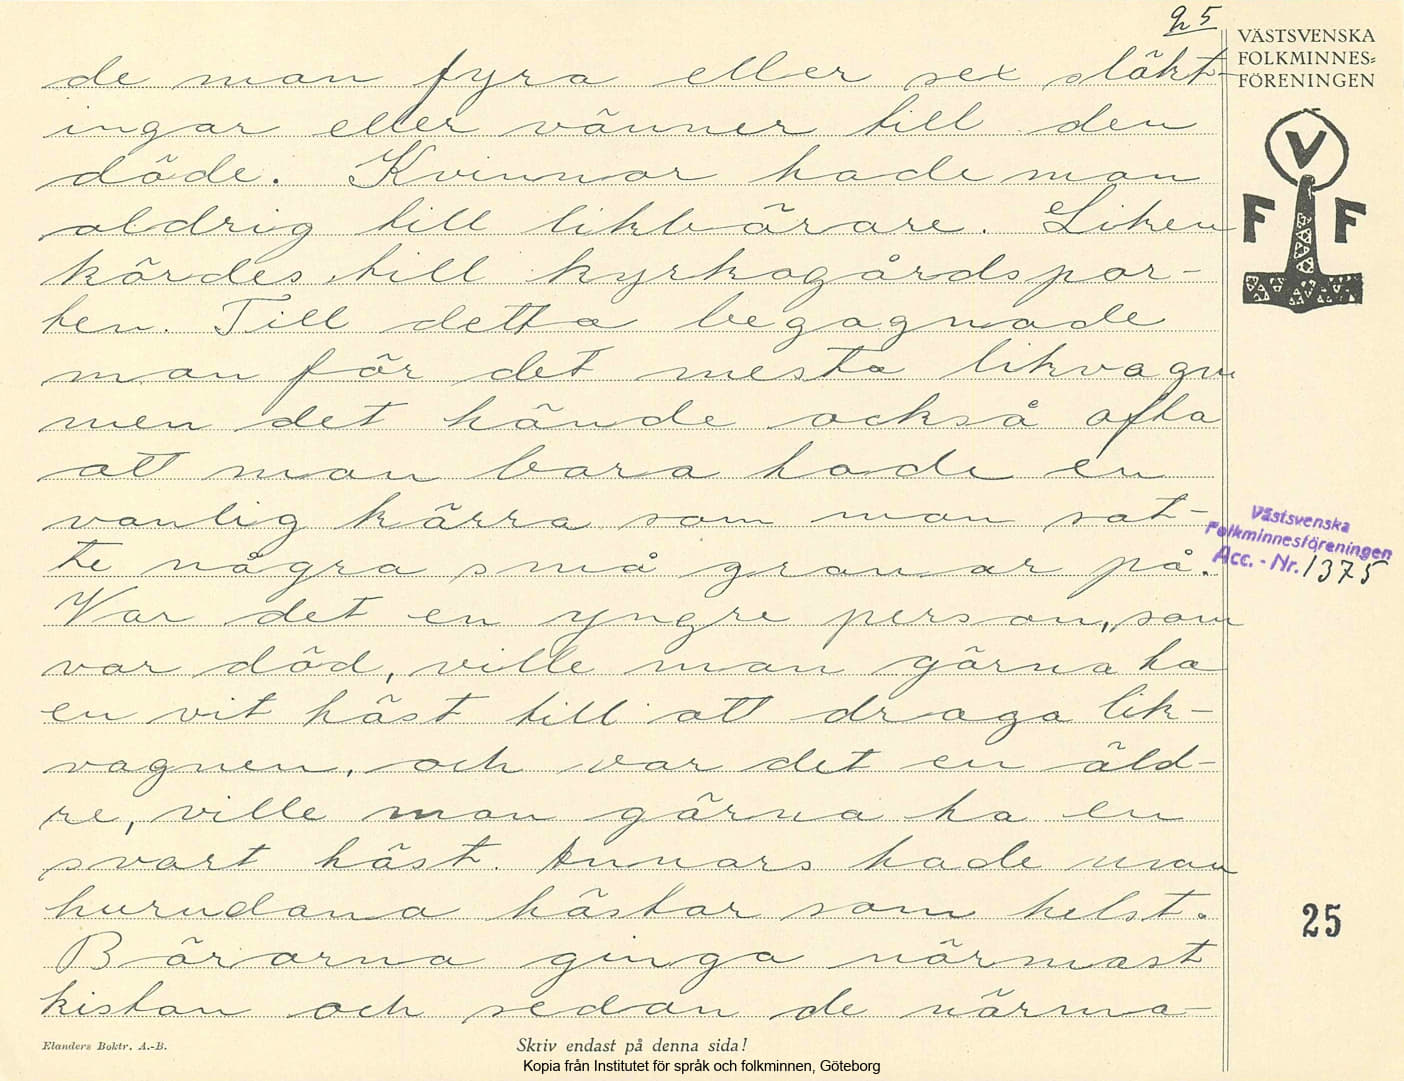 25
de man fyra eller sex släkt-
ingar eller vänner till den
döde. Kvinnor hade man
aldrig till likbärare. Liken
kördes till kyrkogårdspor-
ten. Till detta begagnade
man för det mesta likvagn
men det hände också ofta
att man bara hade en
vanlig kärra som man sat-
te några små granar på.
Var det en yngre person, som
var död, ville man gärna ha
en vit häst till att draga lik-
vagnen, och var det en äld-
re, ville man gärna ha en
svart häst. Annars hade man
hurudana hästar som helst.
Bärarna ginga närmast
kistan och sedan de närma-
VÄSTSVENSKA
FOLKMINNES-
FÖRENINGEN
V
F F
Västsvenska
Folkminnesföreningen
Acc. - Nr. 1375
25
Elanders Boktr. A.-B.
Skriv endast på denna sida!
Kopia från Institutet för språk och folkminnen, Göteborg